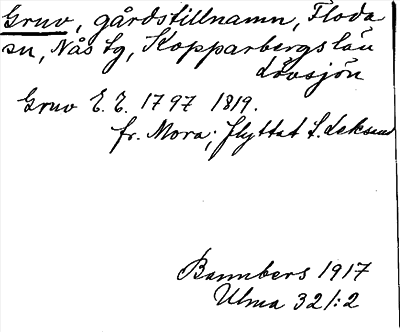 Gruv, gårdstillnamn, Floda
sn, Nås tg, Kopparbergs län
Lövsjön
Gruv E. E. 1797 1819.
fr. Mora; flyttat t. Leksand
Bannbers 1917
Ulma 321:2